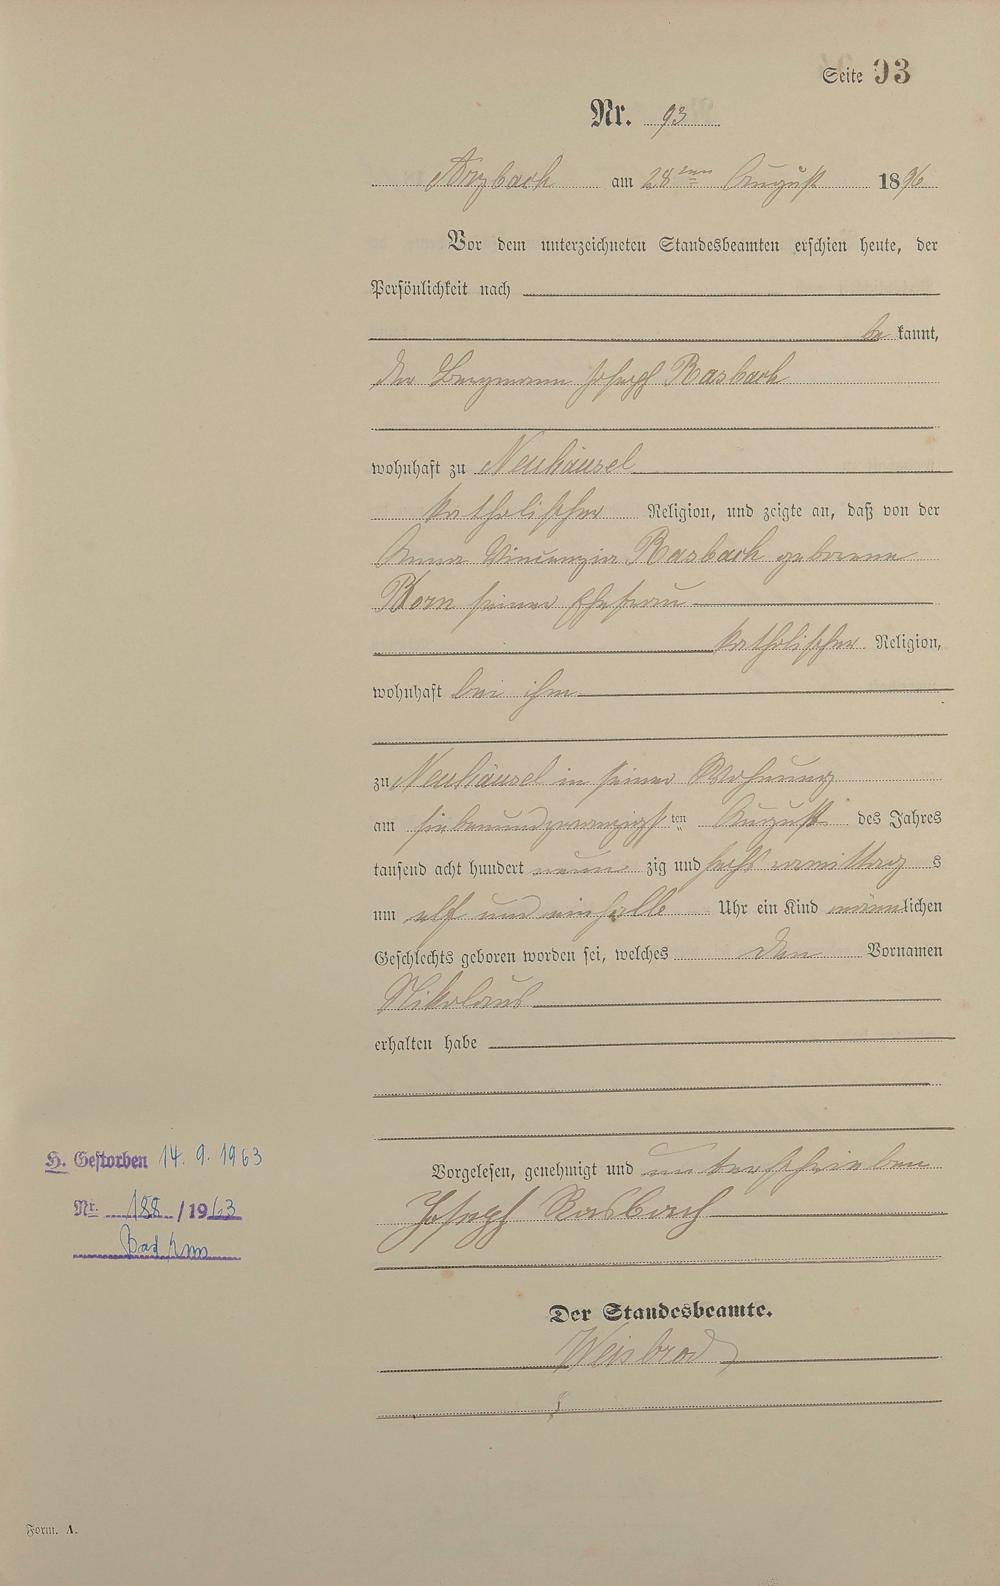 Seite 93
Nr. 93
Arzbach am 28ten August 1896
Vor dem unterzeichneten Standesbeamten erschien heute, der
Persönlichkeit nach
be kannt,
der Bergmann Joseph Rasbach
wohnhaft zu Neuhäusel
katholischer Religion, und zeigte an, daß von der
Anna Vincenzia Rasbach geborene
Korn seiner Ehefrau
katholischer Religion,
wohnhaft bei ihm
zu Neuhäusel in seiner Wohnung
am siebenundzwanzigsten August des Jahres
tausend acht hundert neun zig und sechs vormittag s
um elf und einhalb Uhr ein Kind männlichen
Geschlechts geboren worden sei, welches den Vornamen
Nikolaus
erhalten habe
Vorgelesen, genehmigt und unterschrieben
Joseph Rasbach
Der Standesbeamte.
Weisbrod
H. Gestorben 14. 9. 1963
Nr. 188 / 1963
Bad Ems
Form. A.